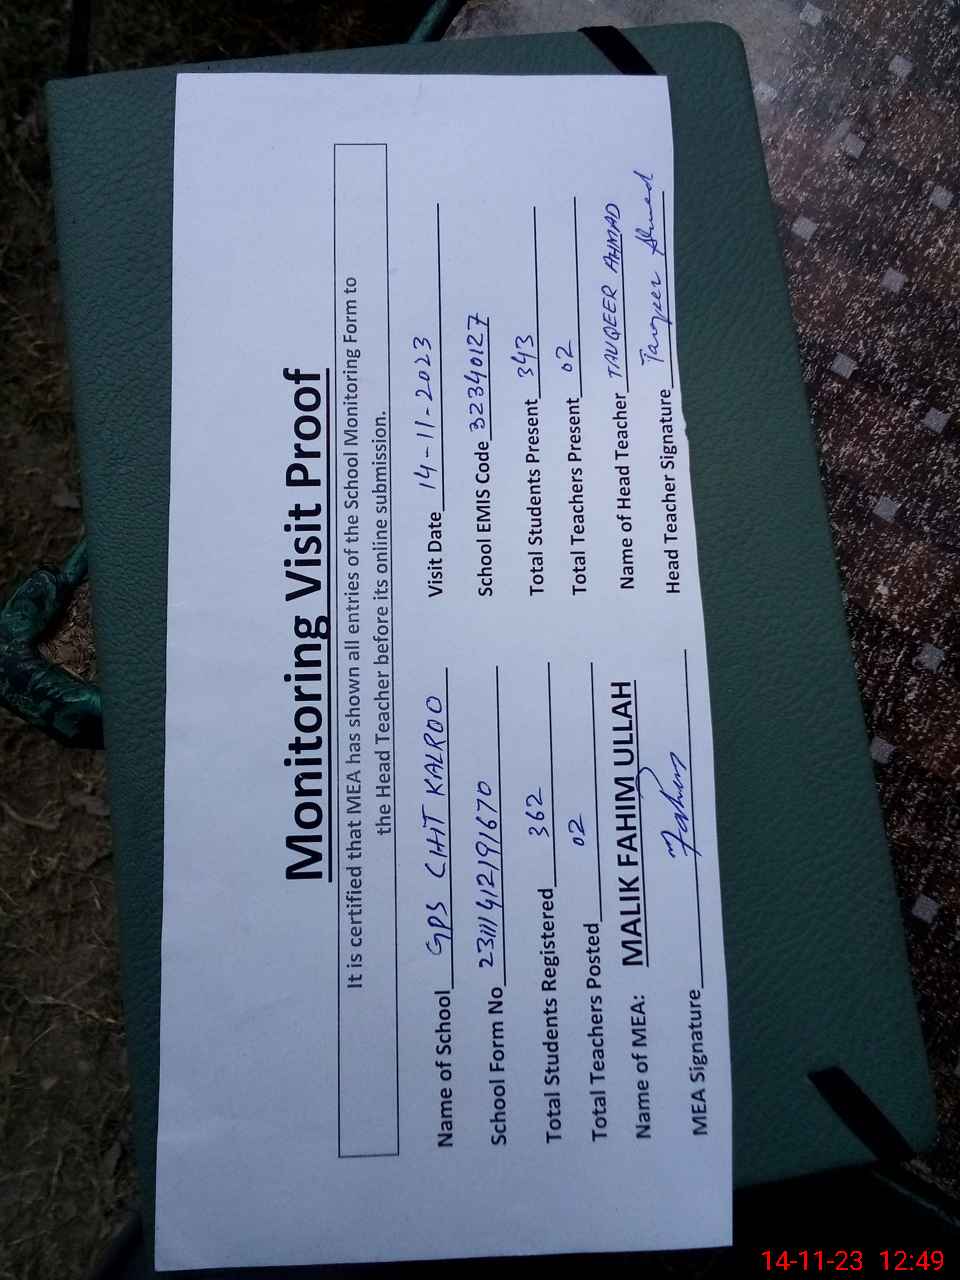 Monitoring Visit Proof
It is certified that MEA has shown all entries of the School Monitoring Form to
the Head Teacher before its online submission.
Name of School GPS CHIT KALROO Visit Date 14-11-2023
School Form No 23111412191670 School EMIS Code 32340127
Total Students Registered 362 Total Students Present 343
Total Teachers Posted 02 Total Teachers Present 02
Name of MEA: MALIK FAHIM ULLAH Name of Head Teacher TAUQEER AHMAD
MEA Signature Fahim Head Teacher Signature Tauqeer Ahmed
14-11-23 12:49